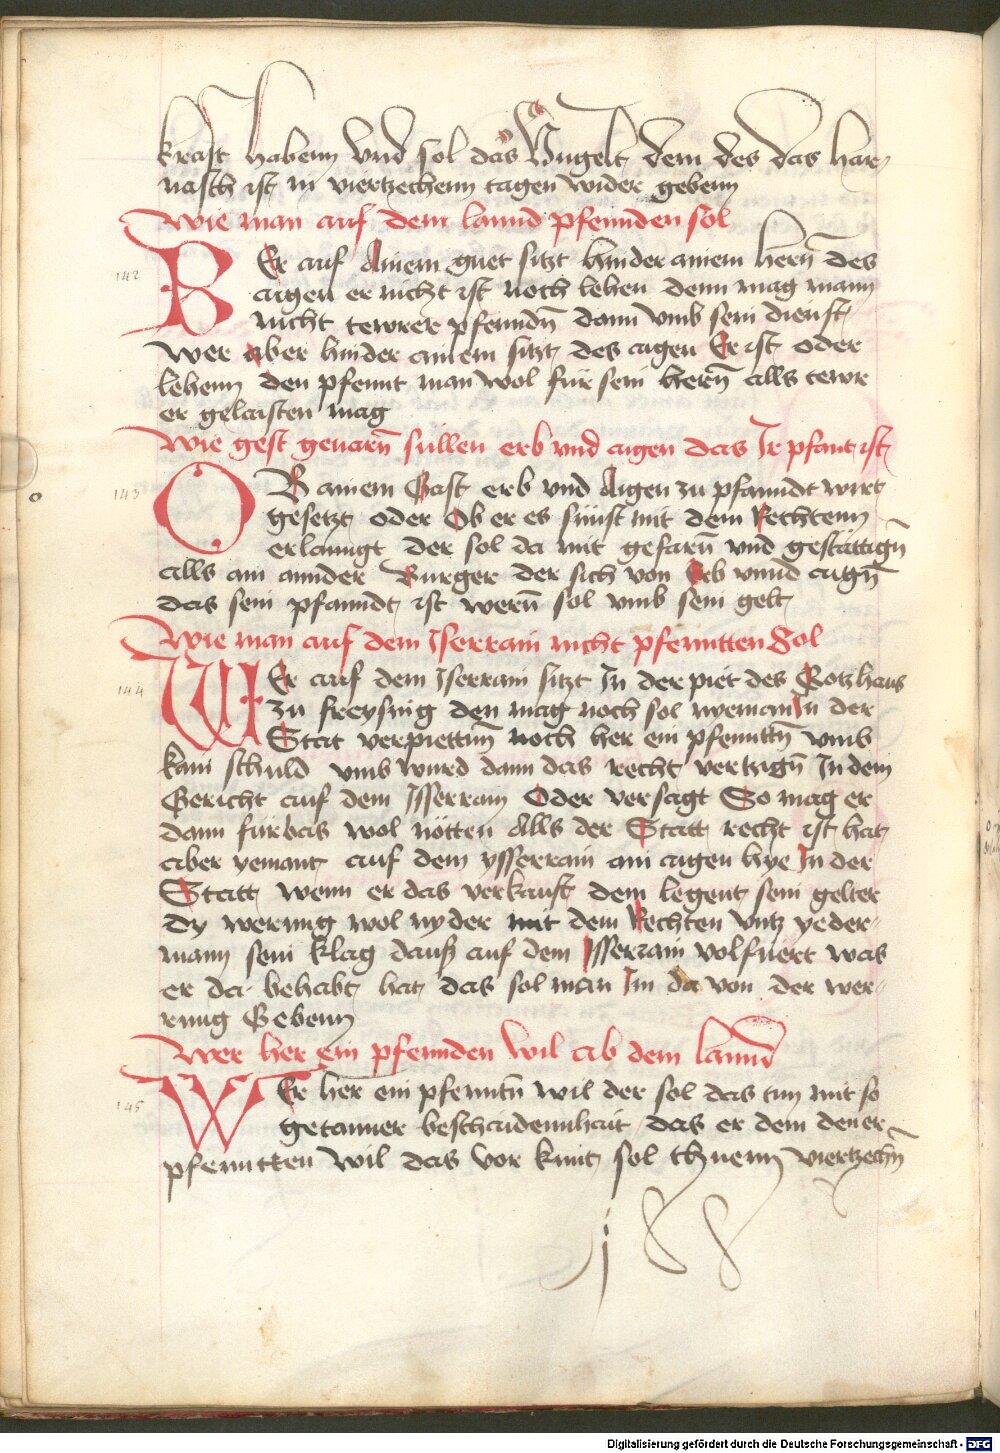 krafft habenn Vnd sol das Vngelt dem des das har-
nasch ist in viertzechenn tagen wider gebenn
Wie man auf dem lannd pfennden sol
142
BEr auf Ainem guet sitzt hinder ainem hern̄ des
aigen er nicht ist noch lehen denn mag mann
nicht tewrer pfenndn̄ dann vmb sein dienst
Wer aber hinder ainem sitzt des aigen Er ist oder
lehenn den pfennt man wol für sein hern̄ alls tewr
er gelaisten mag
Wie gest geuarn̄ süllen erb vnd aigen das Ir pfant ist
143
OB ainem Gast erb vnd Aigen zu pfanndt wirt
gesetzt oder Ob er es sünst mit dem Rechtenn
erlanngt der sol da mit gefarn̄ vnd gestättign̄
alls ain annder Burger der sich von Erb vnnd aign̄
das sein pfanndt ist wern̄ sol vmb sein gelt
Wie man auf dem Iserrain nicht pfenntten Sol
144
WEr auf dem Iserrain sitzt In der piet des Gotzhaus
zu freysing den mag noch sol nyeman In der
Stat verpiettn̄ noch her ein pfenttn̄ vmb
kain schuld vmb wurd dann das recht vertzign̄ In dem
Gericht auf dem Isserrain Oder versagt So mag er
dann fürbas wol nötten Alls der Statt recht ist hat
aber yemant auf dem ysserrain ain aigen hye In der
Statt wenn er das verkauft dem legent sein gelter
dy werung wol nyder mit dem Rechten vntz yeder-
mann sein klag dauß auf dem Isserrain volfuert was
er da behabt hat das sol man Im da von der wer-
rung Gebenn
Wer her ein pfennden wil ab dem lannd
145
WEr her ein pfenntn̄ wil der sol das tun mit so
getanner beschaidennhait das er dem den er
pfenntten wil das vor kunt sol thuenn viertzechn̄
Digitalisierung gefördert durch die Deutsche Forschungsgemeinschaft - DFG